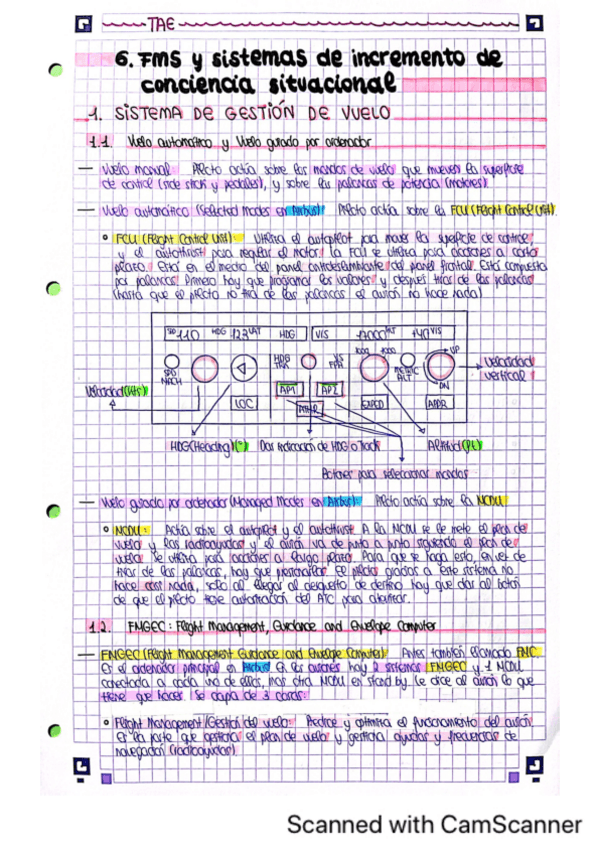 TAE
6. FMS y sistemas de incremento de
conciencia situacional
1. SISTEMA DE GESTIÓN DE VUELO
1.1. Vuelo automático y Vuelo guiado por ordenador
— Vuelo manual: Piloto actúa sobre los mandos de vuelo que mueven la superficie
de control (side stick y pedales), y sobre las palancas de potencia (motores).
— Vuelo automático (Selected Modes en Airbus): Piloto actúa sobre la FCU (Flight Control Unit).
FCU (Flight Control Unit): Utiliza el autopilot para mover la superficie de control
y el autothrust para regular el motor. La FCU se utiliza para acciones a corto
plazo. Está en el medio del panel antideslumbrante del panel frontal. Está compuesta
por palancas. Primero hay que programar los valores y después tirar de las palancas
(hasta que el piloto no tira de las palancas el avión no hace nada)
SPD 110 HDG 123 LAT HDG V/S 17000 ALT +40 V/S
100 1000 UP
SPD MACH HDG TRK VS FPA METRIC ALT Velocidad
vertical
AP1 AP2 DN
Velocidad (kts) LOC A/THR EXPED APPR
HDG (Heading) (°) Dar indicación de HDG o Track Altitud (ft)
Botones para seleccionar mandos
— Vuelo guiado por ordenador (Managed Modes en Airbus): Piloto actúa sobre la MCDU
MCDU: Actúa sobre el autopilot y el autothrust. A la MCDU se le mete el plan de
vuelo y las radioayudas y el avión va de punto a punto siguiendo el plan de
vuelo. Se utiliza para acciones a largo plazo. Para que se haga esto, en vez de
tirar de las palancas, hay que presionarlas. El piloto gracias a este sistema no
hace casi nada, solo al llegar al aeropuerto de destino hay que dar al botón
de que el piloto tiene autorización del ATC para aterrizar.
1.2. FMGEC: Flight Management, Guidance and Envelope Computer
— FMGEC (Flight Management Guidance and Envelope Computer): Antes también llamado FMC.
Es el ordenador principal en Airbus. En los aviones hay 2 sistemas FMGEC y 1 MCDU
conectada a cada uno de ellos, más otra MCDU en stand by. Le dice al avión lo que
tiene que hacer. Se ocupa de 3 cosas:
Flight Management/Gestión del vuelo: Predice y optimiza el funcionamiento del avión.
Es la parte que gestiona el plan de vuelo y gestiona ayudas y frecuencias de
navegación (radioayudas)
Scanned with CamScanner